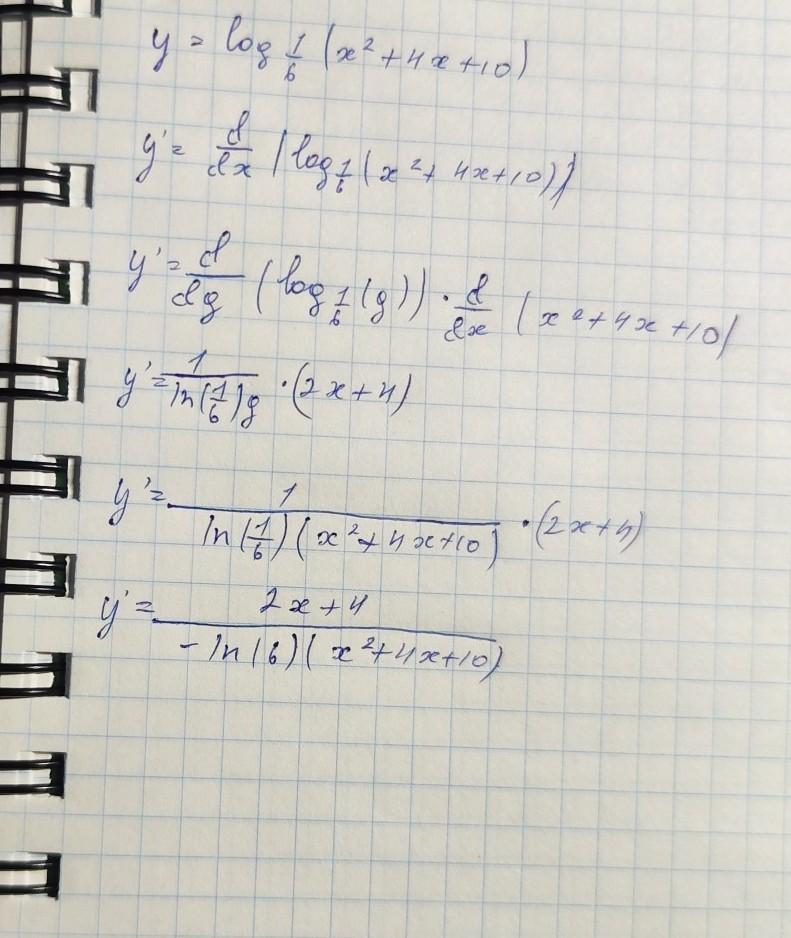 y = log 1/6 (x² + 4x + 10)
y' = d/dx (log 1/6 (x² + 4x + 10))
y' = d/dg (log 1/6 (g)) · d/dx (x² + 4x + 10)
y' = 1/(ln(1/6)g) · (2x + 4)
y' = 1/(ln(1/6)(x² + 4x + 10)) · (2x + 4)
y' = (2x + 4)/(-ln(6)(x² + 4x + 10))